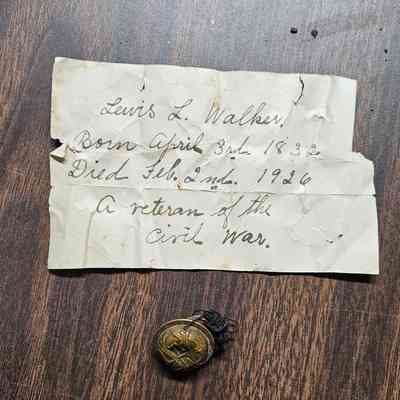 Lewis L. Walker.
Born April 3rd. 1832
Died Feb. 2nd. 1926
A veteran of the
Civil War.